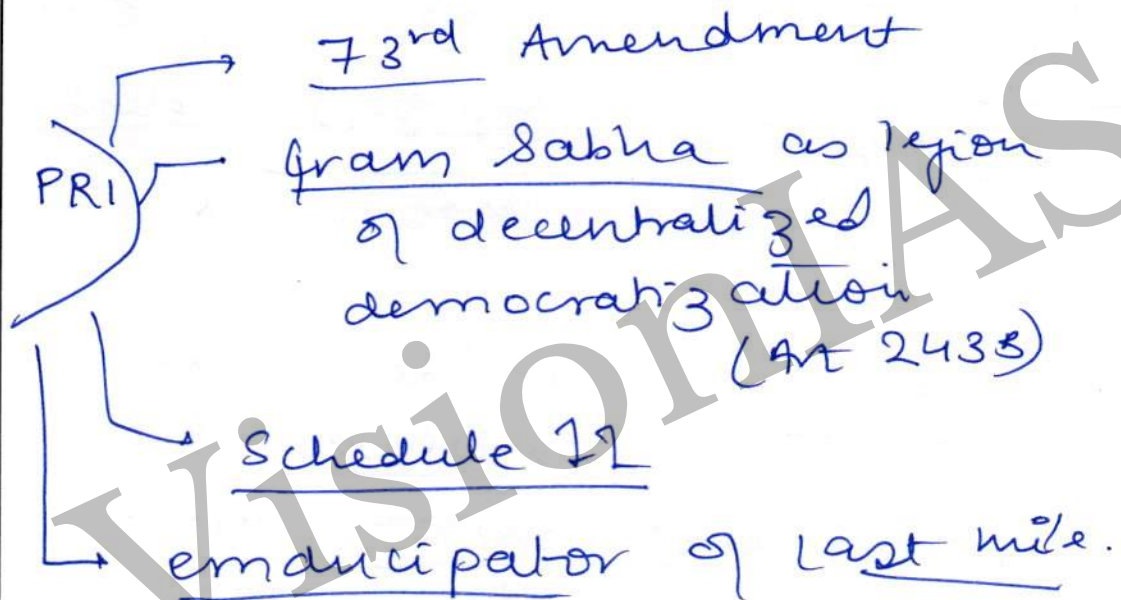 73rd Amendment
PRI
Gram Sabha as legion
of decentralized
democratization
(Art 243B)
Schedule 11
emducipator of last mile.
VisionIAS